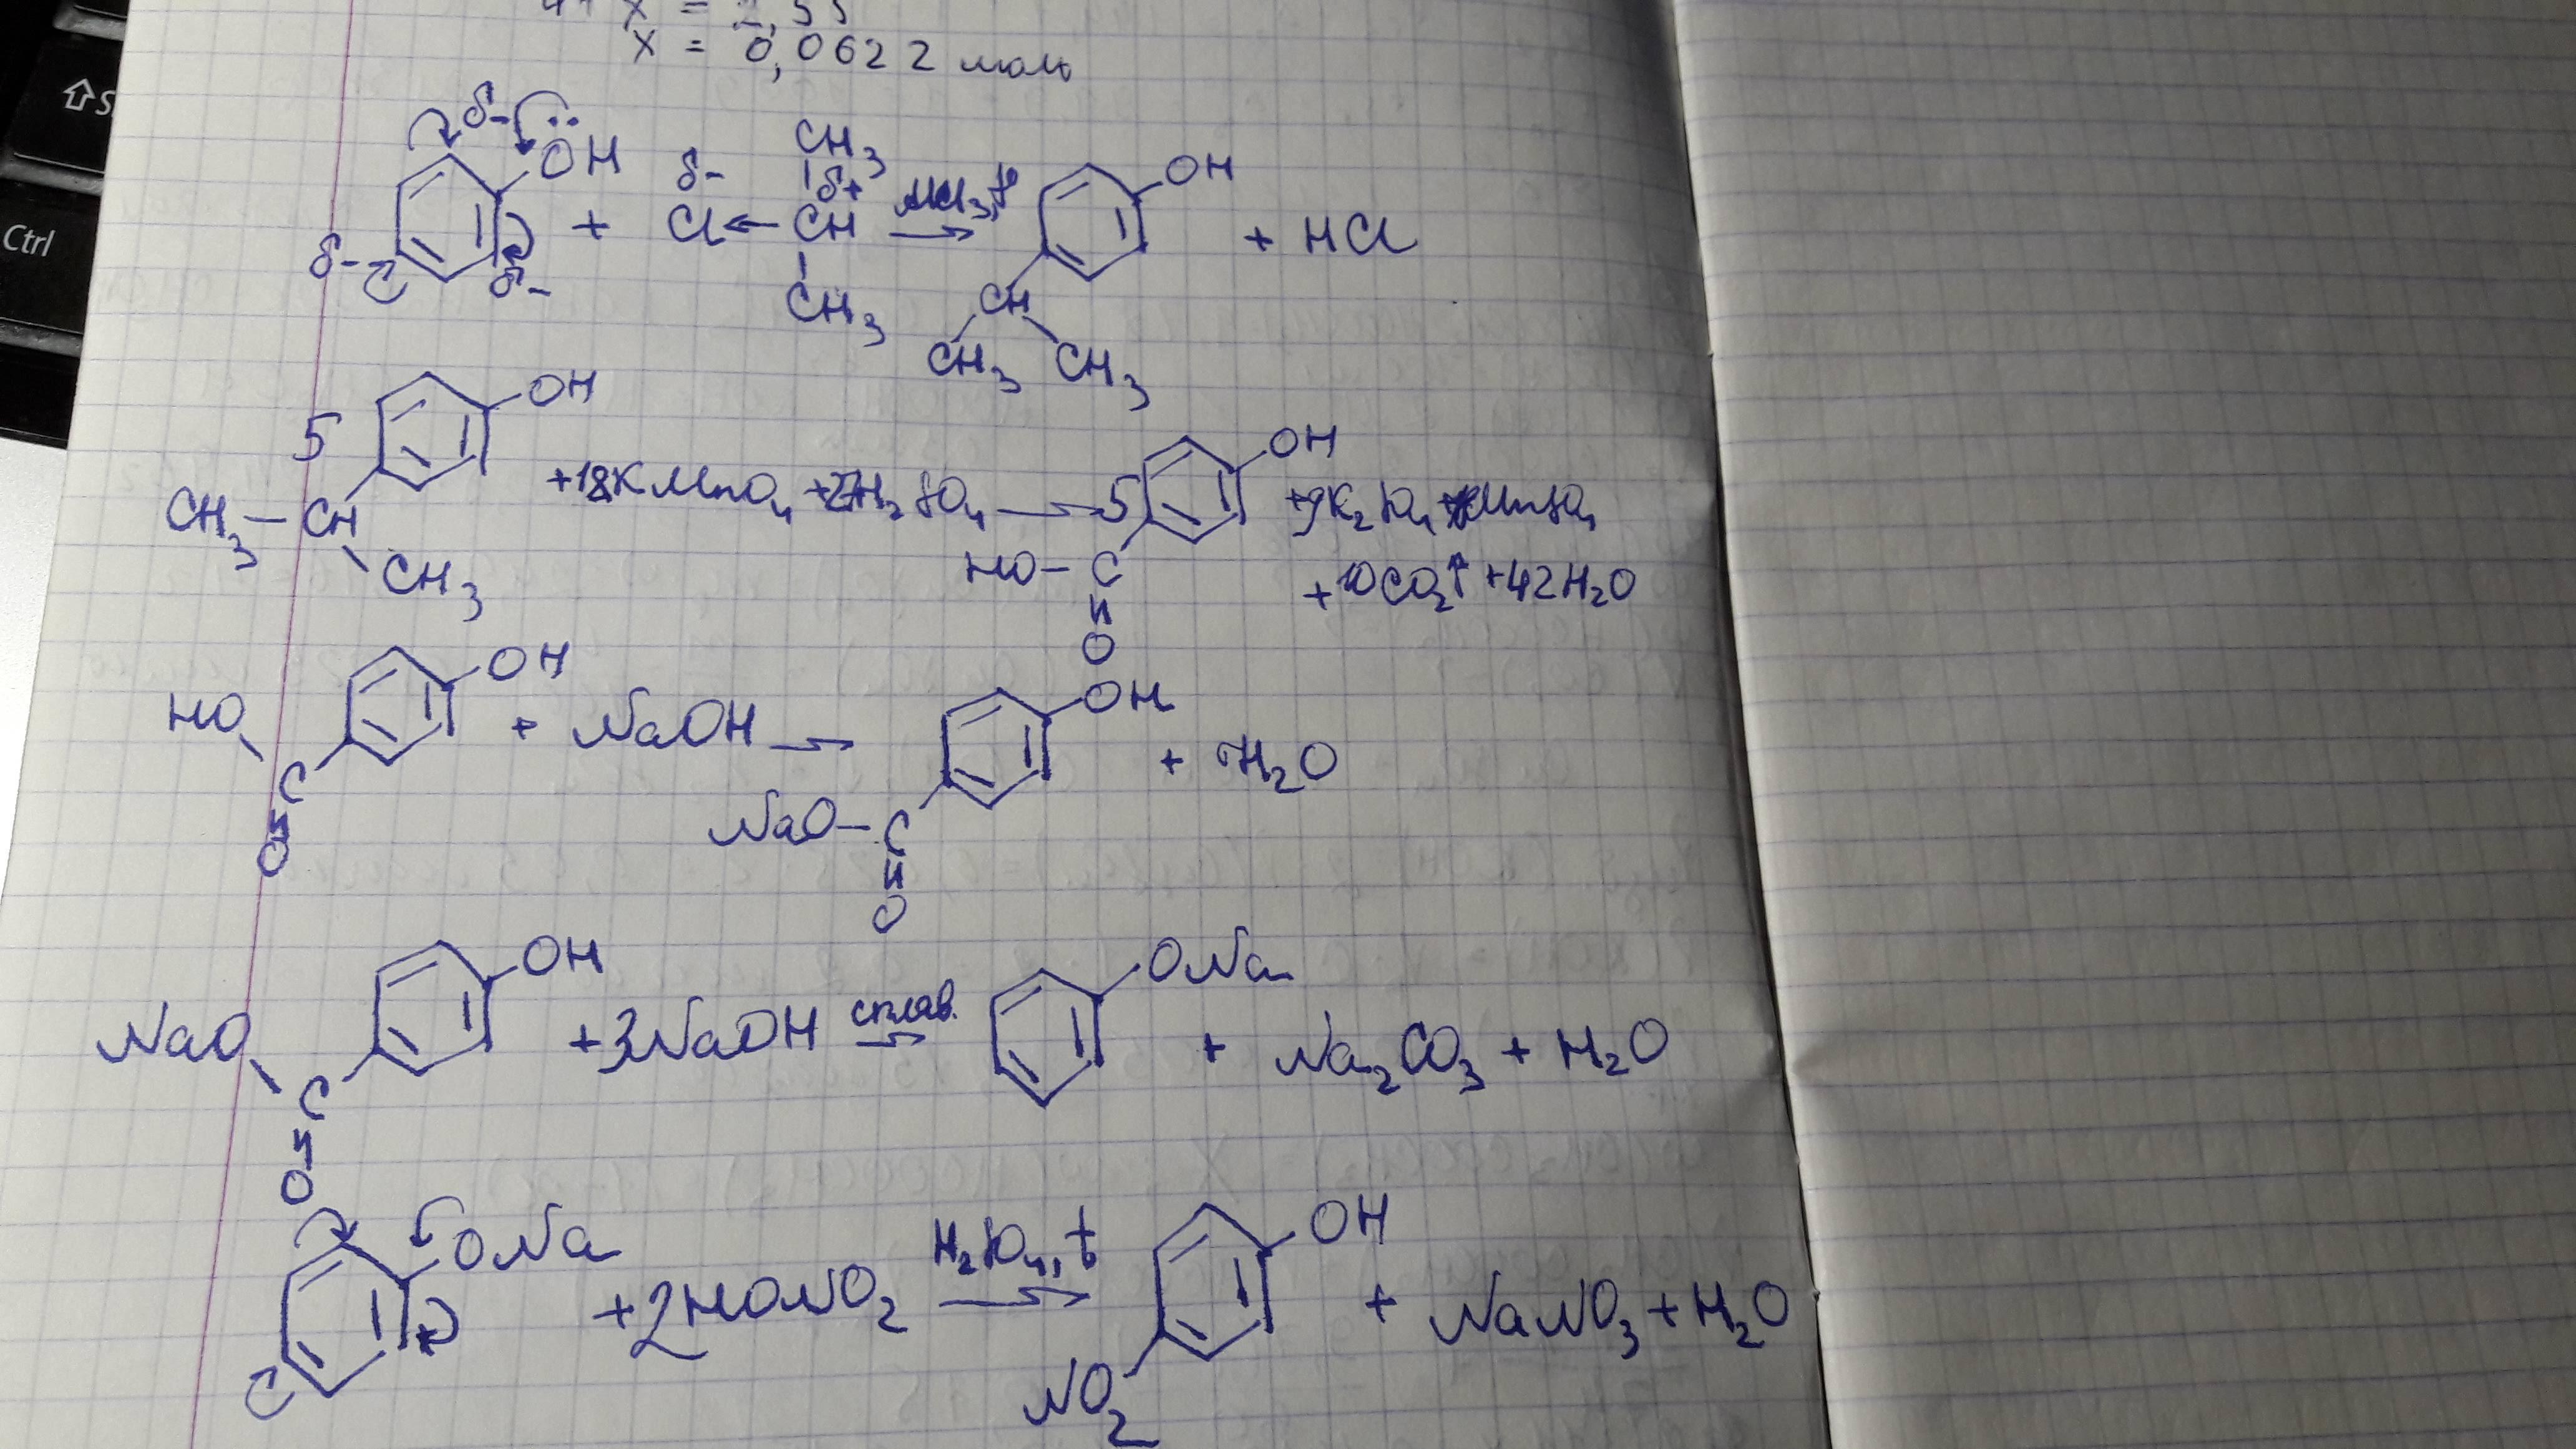 x = 0,0622 моль
Ctrl
δ- OH δ- CH3 δ+ AlCl3, t° OH
+ Cl ← CH → + HCl
δ- δ- CH3 CH
CH3 CH3
5 OH + 18KMnO4 + 27H2SO4 → 5 OH + 9K2SO4 + MnSO4
CH3 – CH HO – C + 10CO2↑ + 42H2O
CH3 O
HO OH + NaOH → OH + H2O
C NaO – C
O O
NaO OH + 3NaOH сплав. → ONa + Na2CO3 + H2O
C
O
ONa + 2HONO2 H2SO4, t → OH + NaNO3 + H2O
NO2